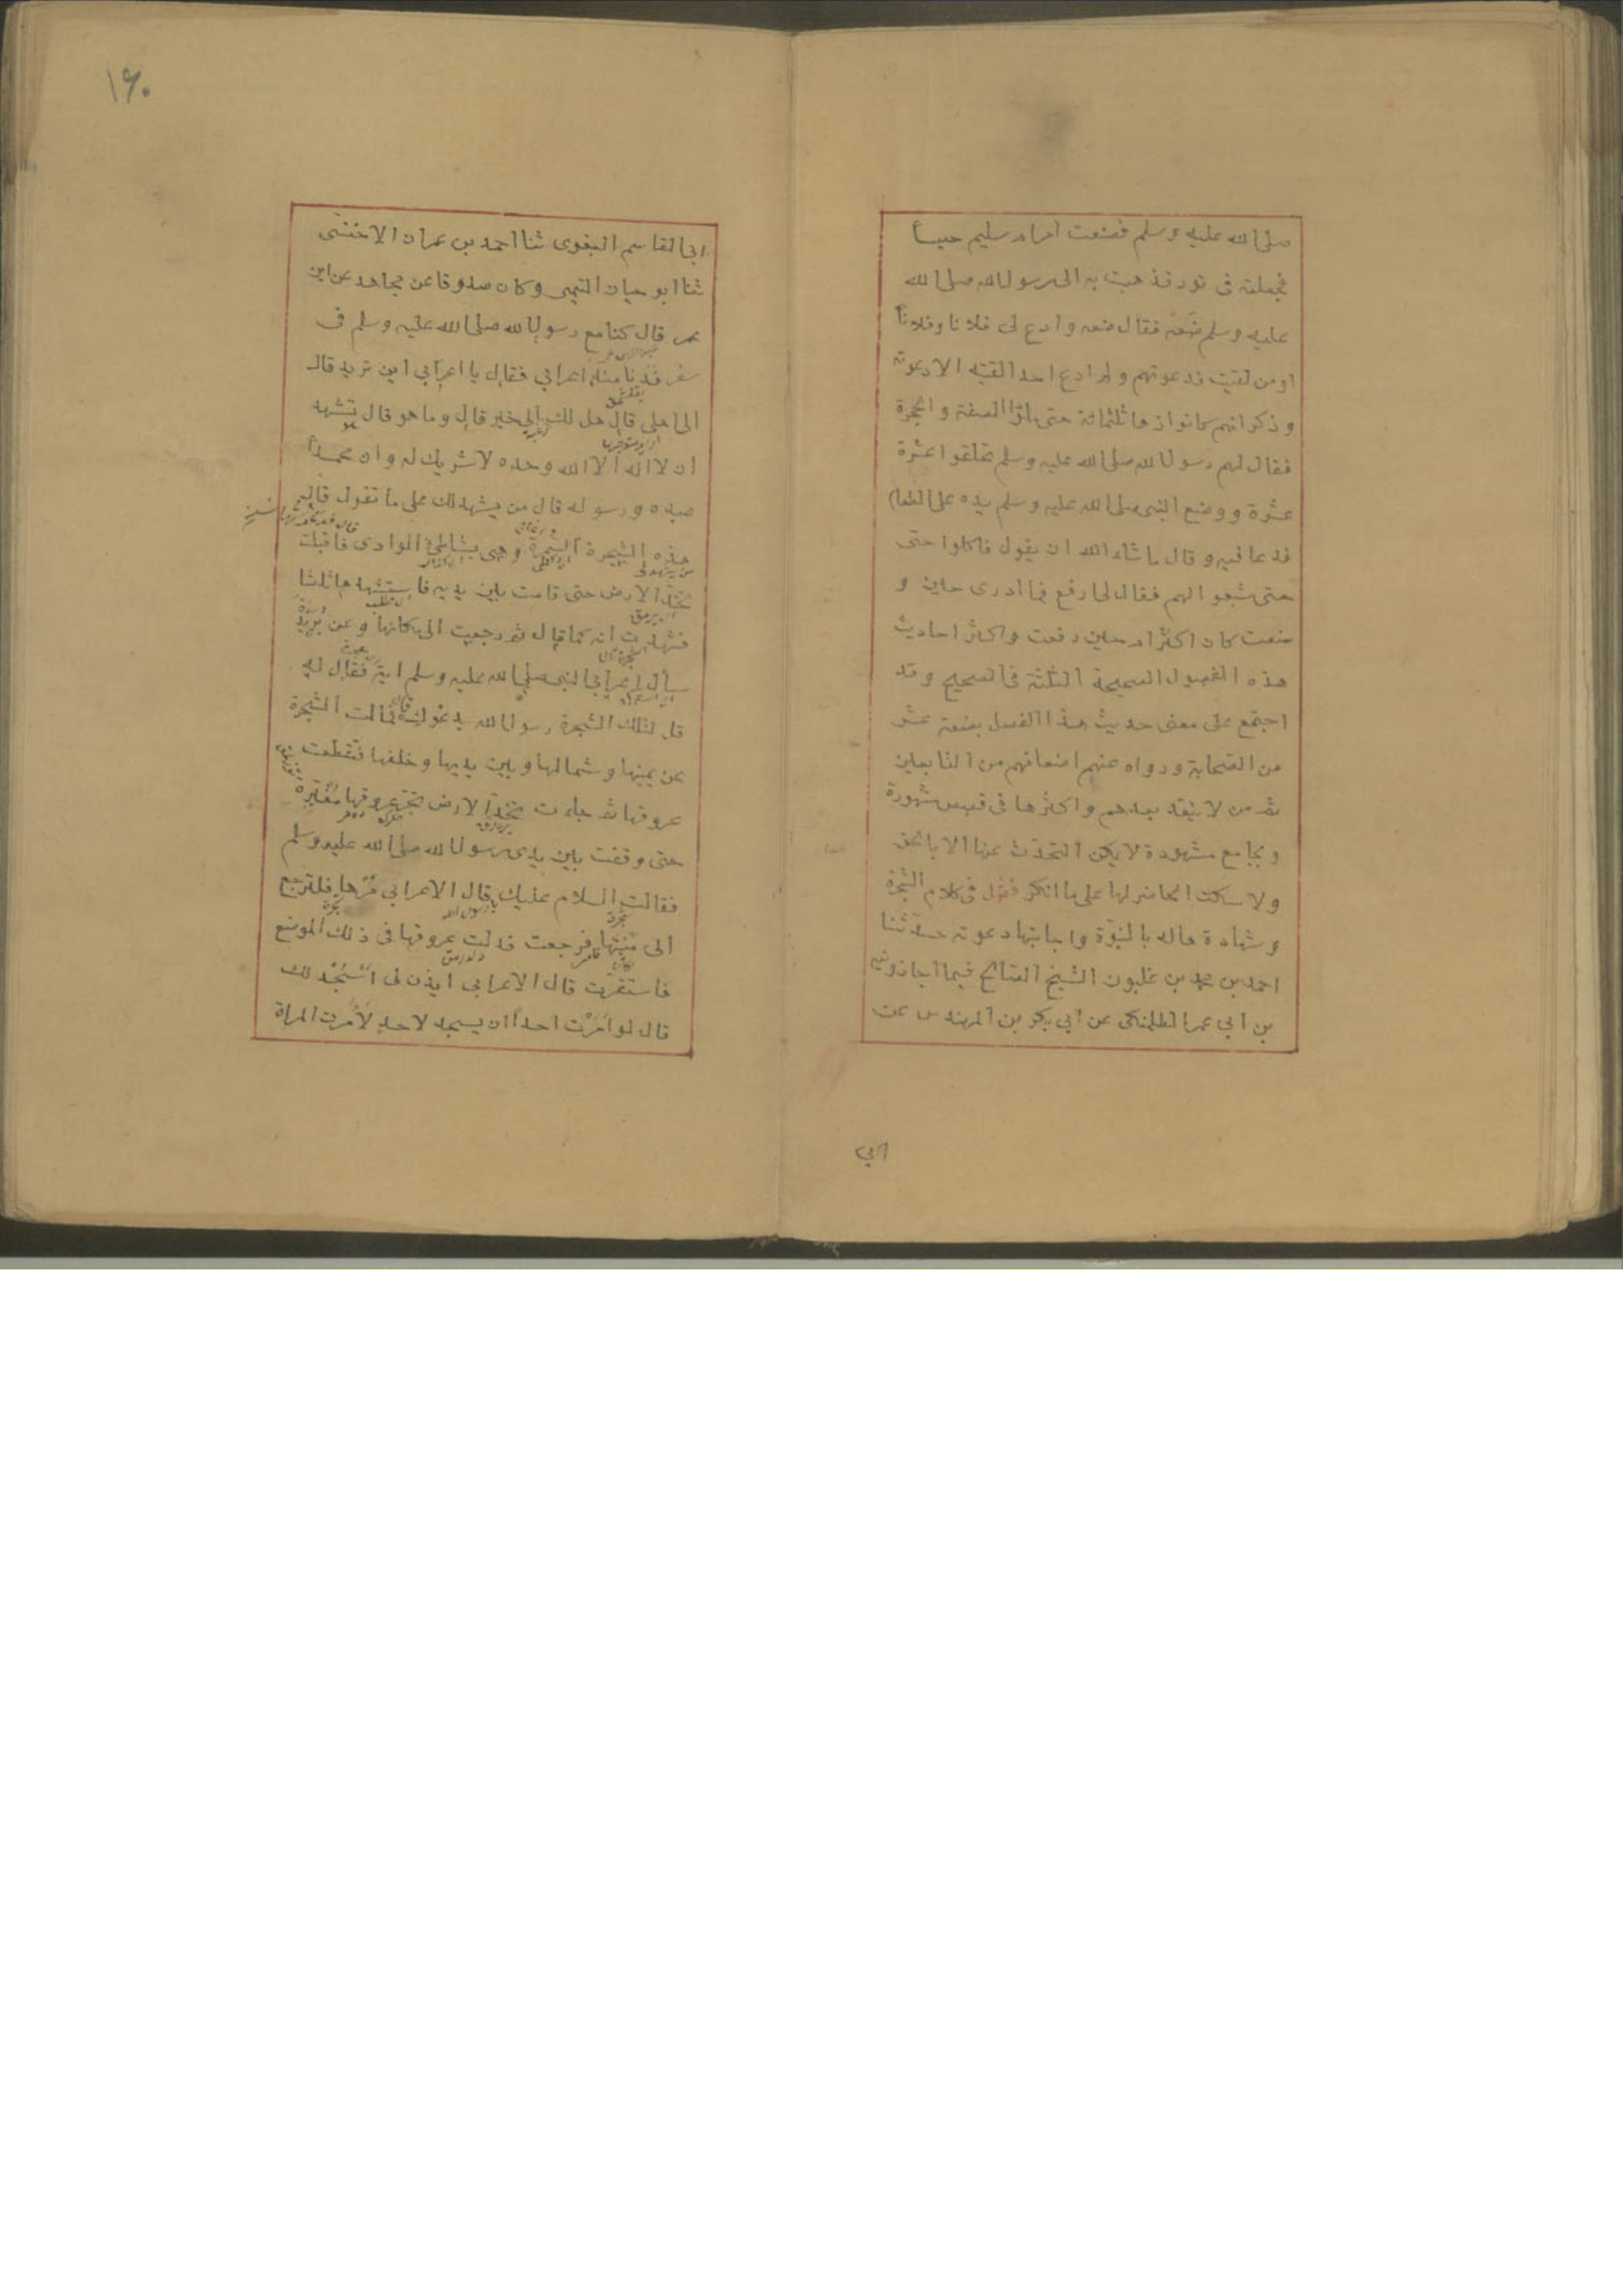 صلى الله عليه وسلم فصنعت ام سليم حيساً
فجعلته فى تور فذهبت به الى رسول الله صلى الله
عليه وسلم فقال ضعه وادع لى فلانا وفلاناً
ومن لقيت فدعوتهم ولم ادع احدا لقيته الا دعوته
وذكر انهم كانوا زهاء ثلثمائة حتى ملؤا الصفة والحجرة
فقال لهم رسول الله صلى الله عليه وسلم تحلقوا عشرة
عشرة ووضع النبى صلى الله عليه وسلم يده على الطعام
فدعا فيه وقال ما شاء الله ان يقول فاكلوا حتى
حتى شبعوا الهم فقال لى ارفع فما ادرى حين و
ضعت كان اكثر ام حين رفعت واكثر احاديث
هذه الفصول الصحيحة الثلثة فى الصحيح وقد
اجتمع على معنى حديث هذا الفصل بضعة عشر
من الصحابة ورواه عنهم اضعافهم من التابعين
ثم من لا ينعد بعدهم واكثرها فى قصص مشهورة
ومجامع مشهودة لا يمكن التحدث عنها الا بالحق
ولا يسكت الحاضر لها على ما انكر فصل فى كلام الشجرة
وشهادة هاله بالنبوة واجابتها دعوته حدثنا
احمد بن محمد بن غلبون الشيخ الصالح فيما اجازونيه
بن ابي عمر الطلمنكى عن ابي بكر بن المهندس عن
ابي
١٦٠
ابى القاسم البغوى ثنا احمد بن عمران الاخنسى
ثنا ابو حيان التيمى وكان صدوقا عن مجاهد عن ابن
عمر قال كنا مع رسول الله صلى الله عليه وسلم فى
سفر فدنا منه اعرابي فقال يا اعرابي اين تريد قال
الى اهلى قال هل لك الى خير قال وما هو قال تشهد
ان لا اله الا الله وحده لا شريك له وان محمداً
عبده ورسوله قال من يشهد لك على ما تقول قال
هذه الشجرة السمرة وهى بشاطئ الوادى فاقبلت
تخدّ الارض حتى قامت بين يديه فاستشهدها ثلثا
فشهدت انه كما قال ثم رجعت الى مكانها وعن بريدة
سأل اعرابي النبى صلى الله عليه وسلم اية فقال له
قل لتلك الشجرة رسول الله يدعوك قال فمالت الشجرة
عن يمينها وشمالها وبين يديها وخلفها فتقطعت
عروقها ثم جاءت تخدّ الارض تجر عروقها مغبّرة
حتى وقفت بين يدى رسول الله صلى الله عليه وسلم
فقالت السلام عليك يا رسول الله قال الاعرابي مُرها فلترجع
الى منبتها فرجعت فدلت عروقها فى ذلك الموضع
فاستقرت قال الاعرابي ايذن لى اسجد لك
قال لو امرت احداً ان يسجد لاحد لأمرت المراة